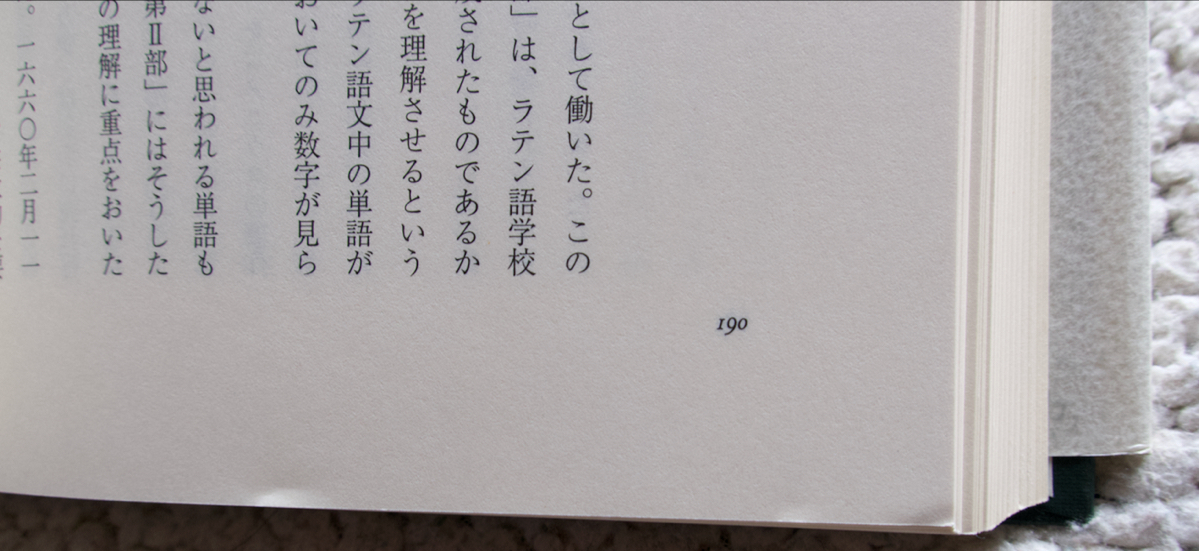 として働いた。この
」は、ラテン語学校
されたものであるか
を理解させるという
テン語文中の単語が
おいてのみ数字が見ら
ないと思われる単語も
第Ⅱ部」にはそうした
の理解に重点をおいた
。一六六〇年二月一一
190